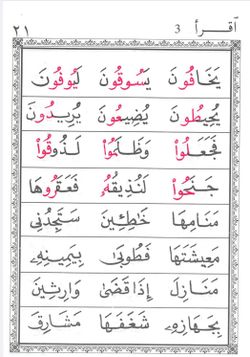 أقرأ 3 ٢١
يَخَافُونَ يَسُوقُونَ لَيُوفُونَ
يُحِيطُونَ يُضِيعُونَ يُرِيدُونَ
فَجَعَلُوا وَظَلَمُوا لَذُوقُوا
جَنَحُوا لَنُذِيقُهُ فَعَقَرُوهَا
مَنَامِهَا خَطِئِينَ سَتَجِدُنِى
مَعِيشَتَهَا فَطُوبَىٰ بِيَمِينِهِ
مَنَازِلَ إِذَا قَضَىٰ وَارِثِينَ
بِجَهَازِهِ شَغَفَهَا مَشَارِقَ